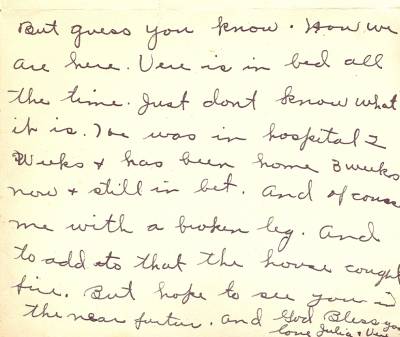 But guess you know. How we
are here. Vere is in bed all
the time. Just dont know what
it is. He was in hospital 2
Weeks + has been home 3 weeks
now + still in bet. And of course
me with a broken leg. And
to add to that the house caught
fire. But hope to see you in
the near futur. and God Bless you
love Julia + Vere